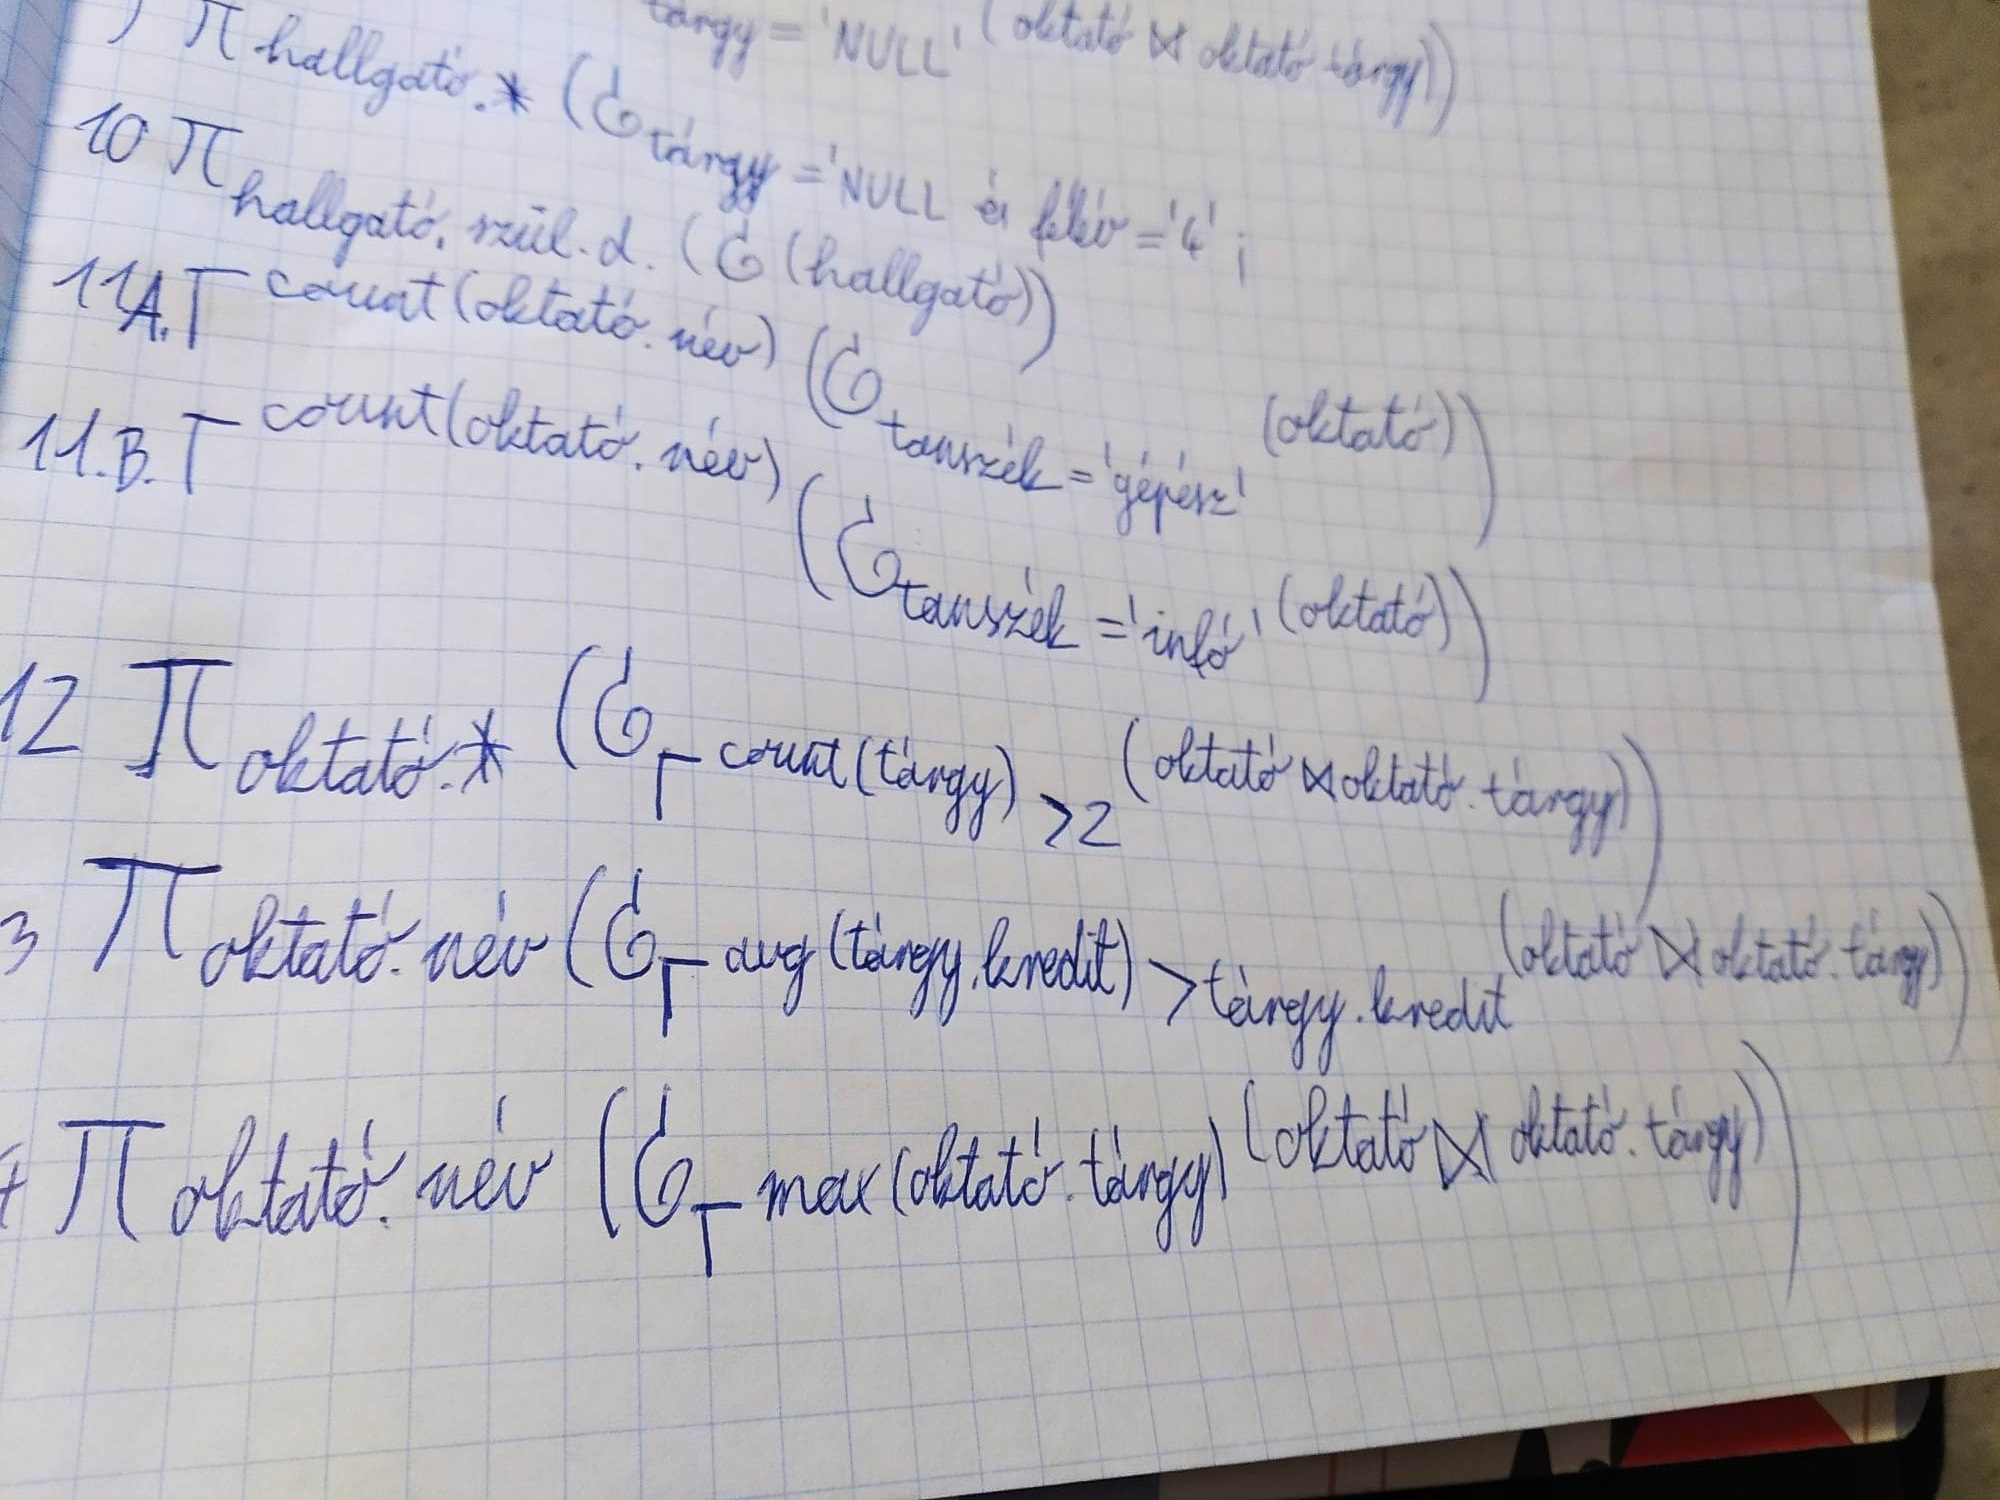 tárgy = 'NULL' (oktató ⋈ oktató tárgy))
) π hallgató.* (σ tárgy = 'NULL és félév = '4' ;
10 π hallgató. szül. d. (σ (hallgató))
11A. Γ count(oktató. név) (σ tanszék = 'gépész' (oktató))
11.B. Γ count(oktató. név) (σ tanszék = 'infó' (oktató))
12 π oktató.* (σ Γ count(tárgy) >2 (oktató ⋈ oktató. tárgy))
3 π oktató. név (σ Γ avg (tárgy.kredit) > tárgy.kredit (oktató ⋈ oktató. tárgy))
π oktató. név (σ Γ max(oktató. tárgy) (oktató ⋈ oktató. tárgy))